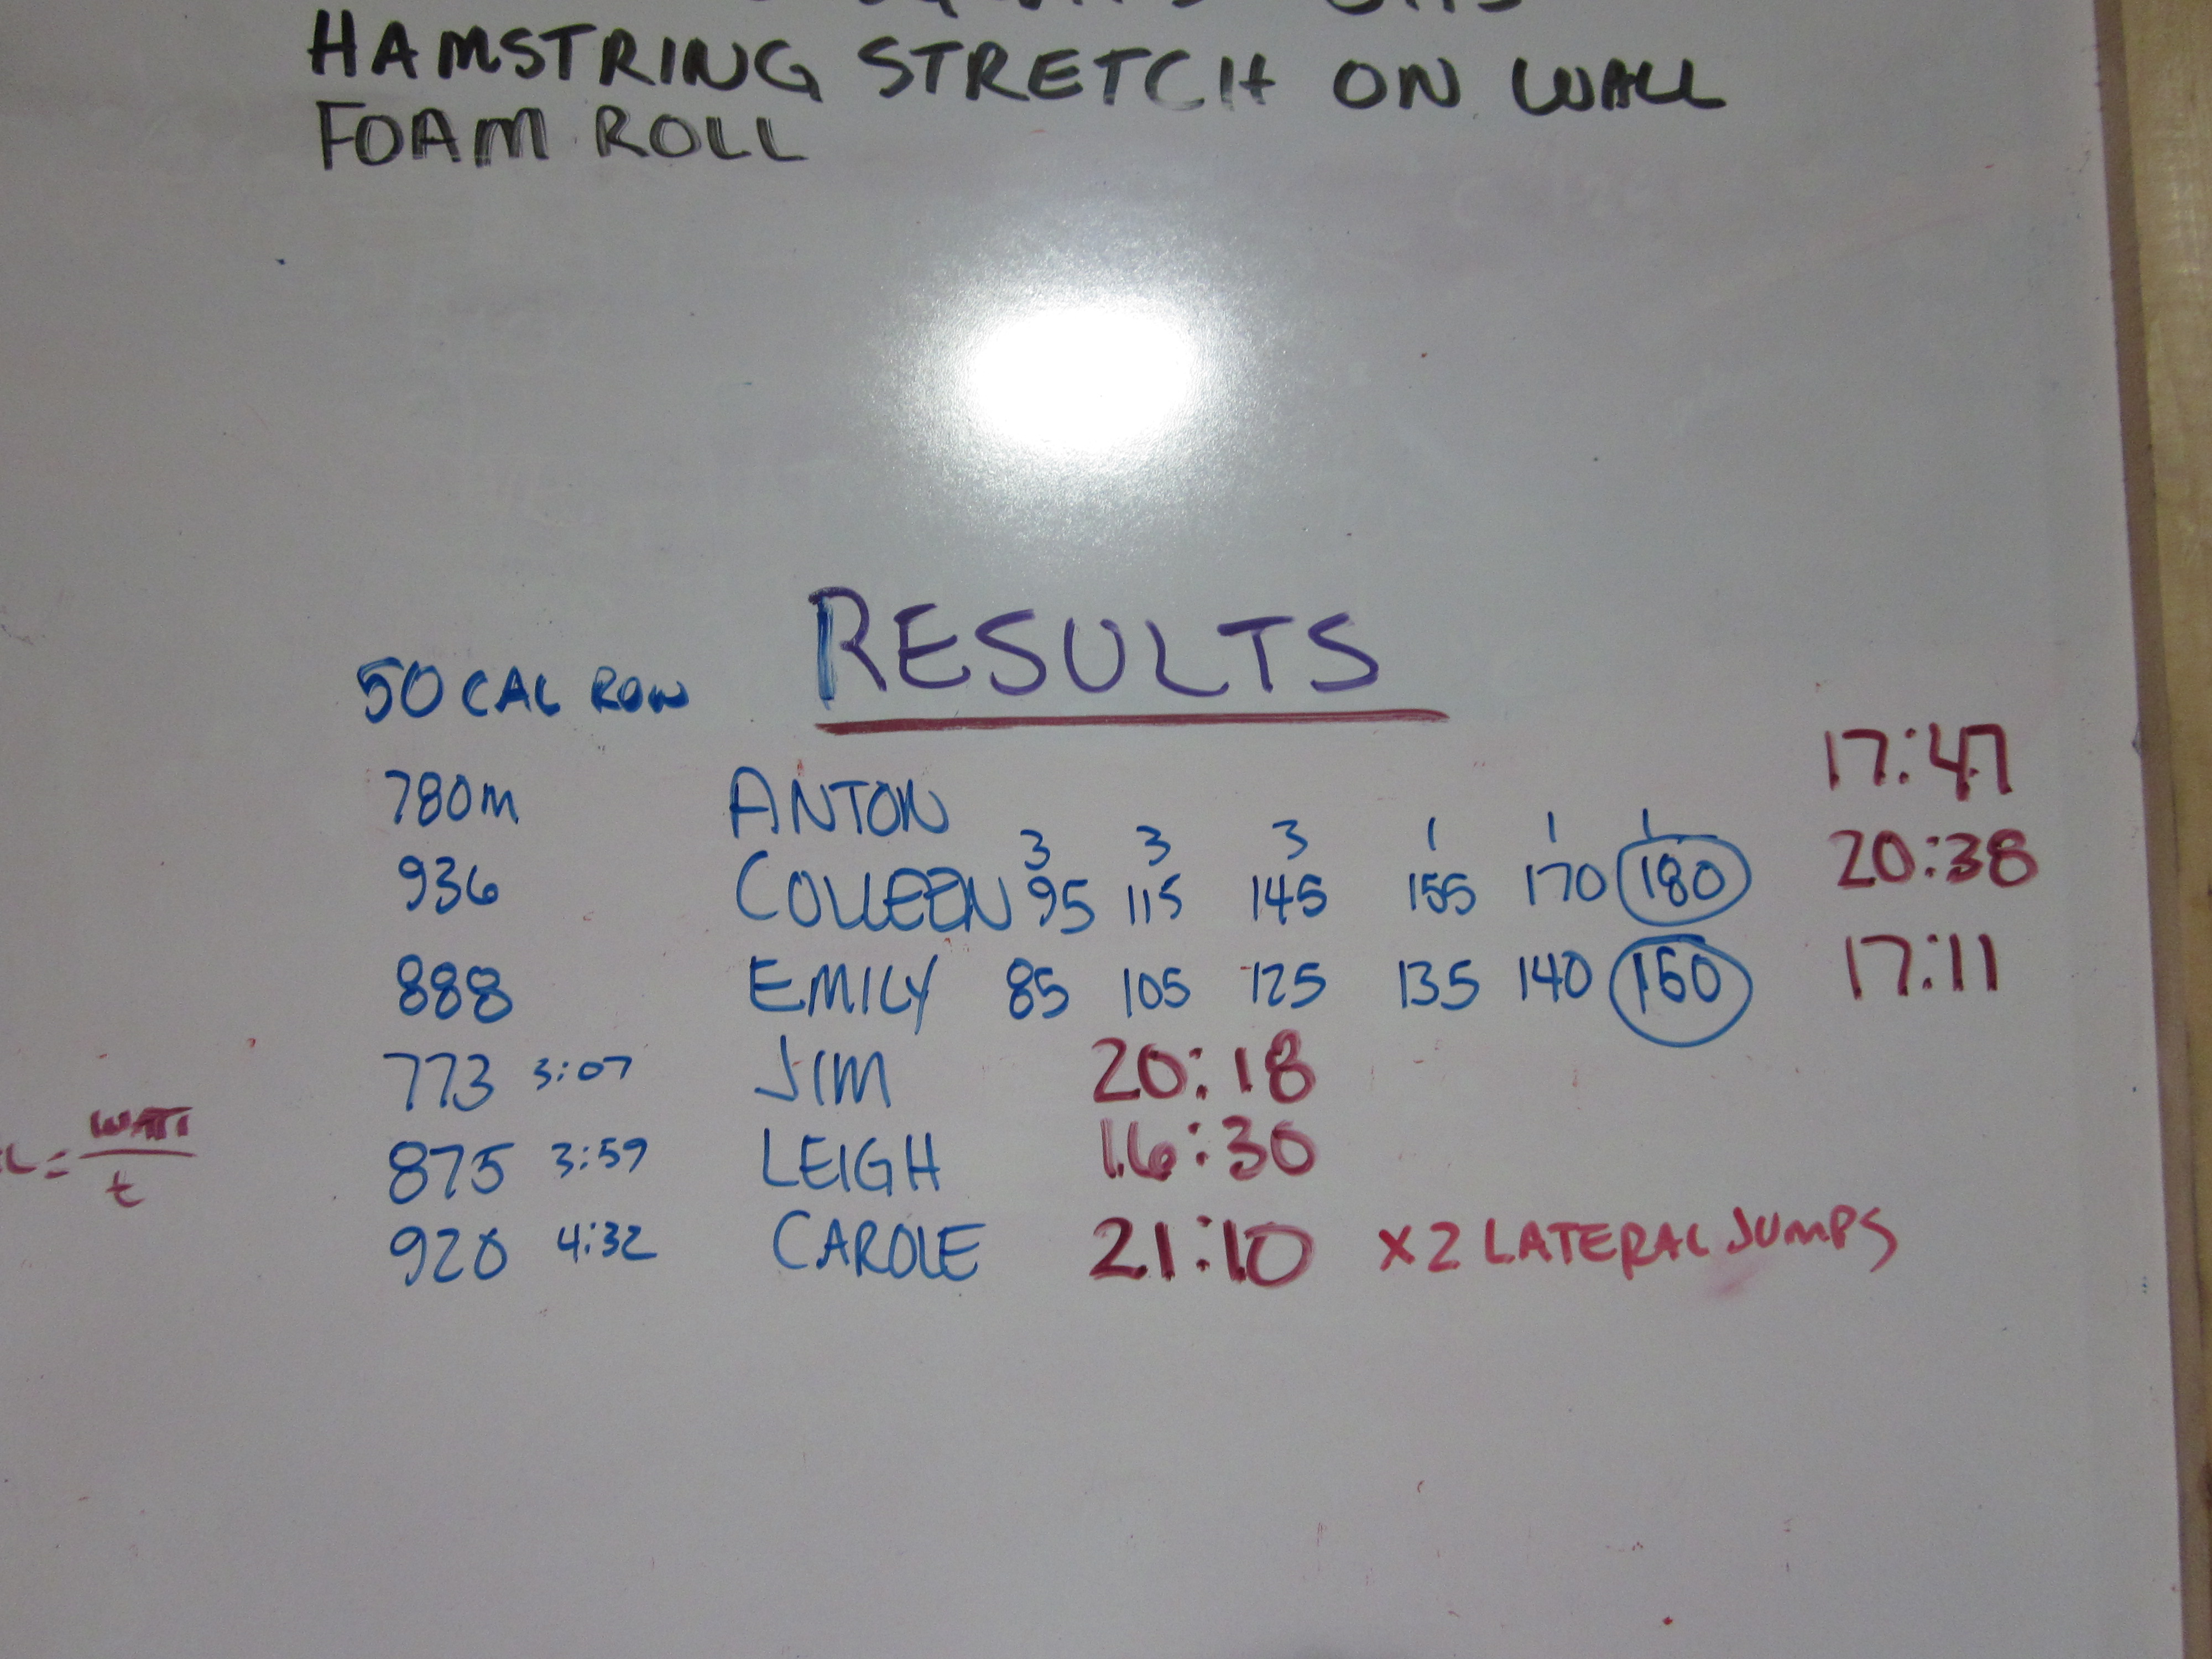 HAMSTRING STRETCH ON WALL
FOAM ROLL
RESULTS
50 CAL ROW
780m ANTON 17:47
3 3 3 1 1 1
936 COLLEEN 95 115 145 155 170 180 20:38
888 EMILY 85 105 125 135 140 150 17:11
773 3:07 JIM 20:18
WATT
875 3:59 LEIGH 16:30
t
920 4:32 CAROLE 21:10 X2 LATERAL JUMPS